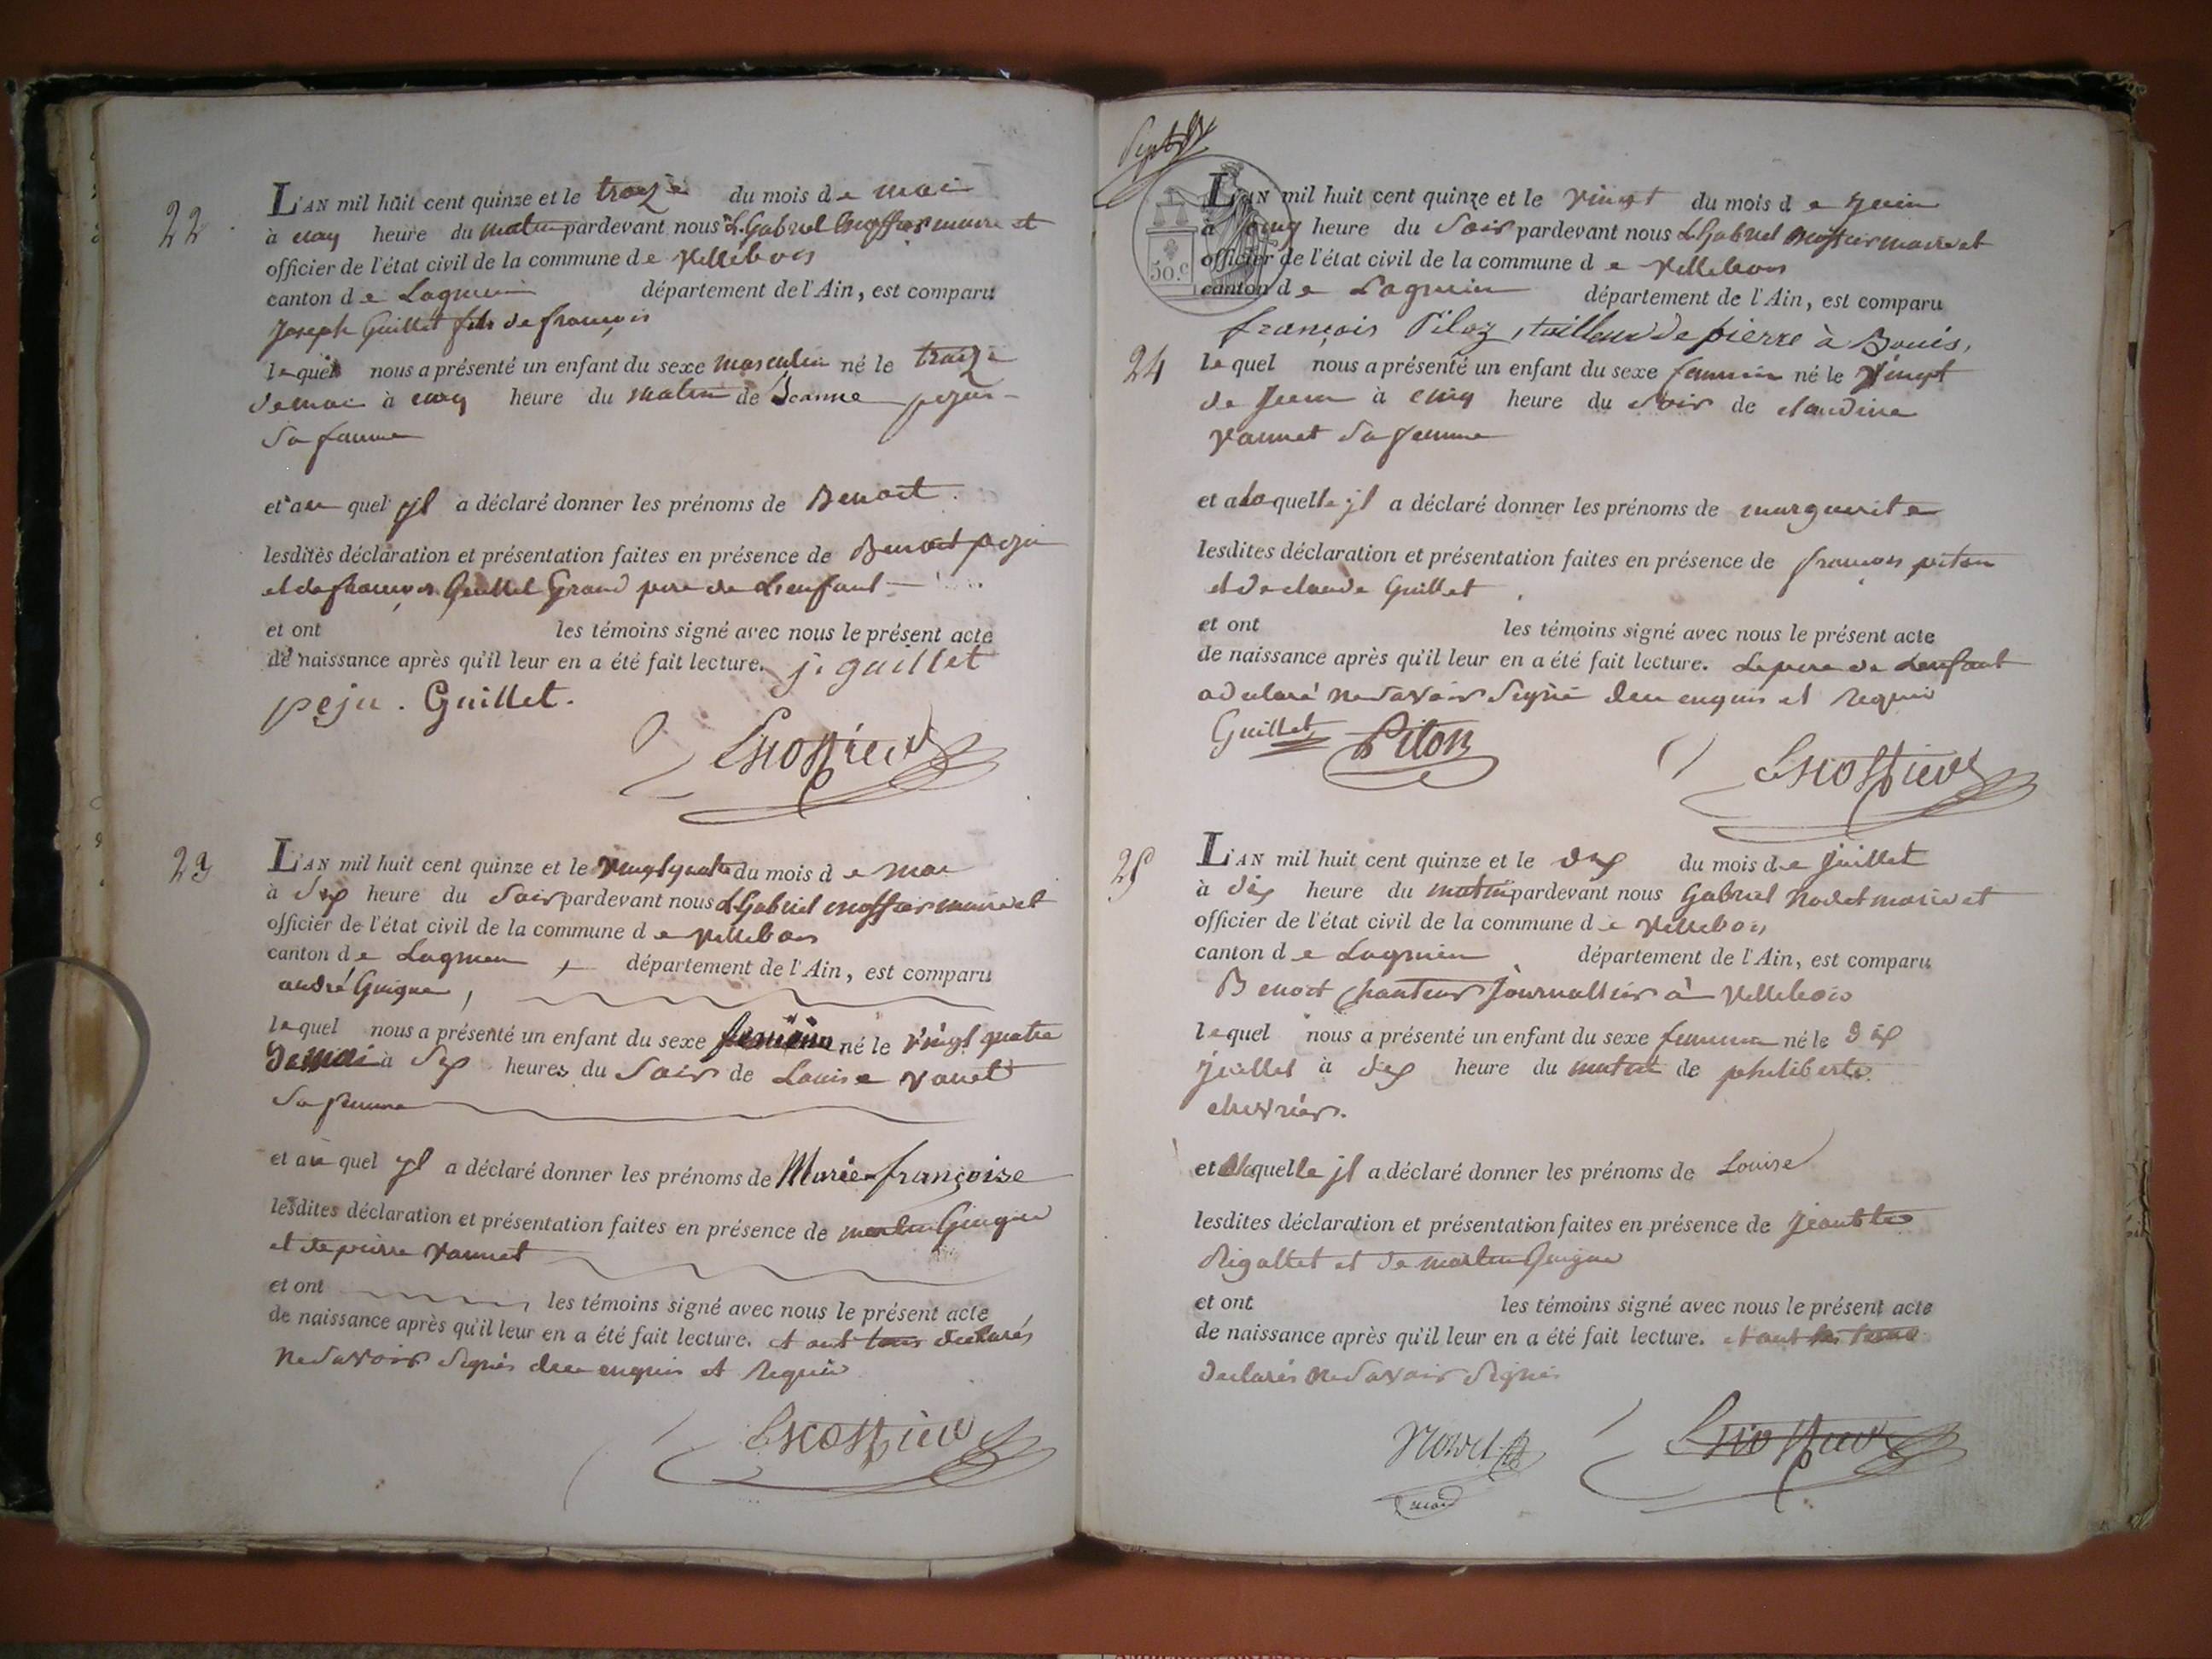 22
L'AN mil huit cent quinze et le treize du mois de mai
à cinq heure du matin pardevant nous L. Gabriel maire et
officier de l'état civil de la commune de Villebois
canton de Lagnieu département de l'Ain, est comparu
Joseph Guillet fils de françois
lequel nous a présenté un enfant du sexe masculin né le treize
de mai à cinq heure du matin de Jeanne peju
Sa femme
et au quel yl a déclaré donner les prénoms de Benoit
lesdites déclaration et présentation faites en présence de Benoit peju
et de françois Guillet Grand pere de Lenfant
et ont les témoins signé avec nous le présent acte
de naissance après qu'il leur en a été fait lecture. j. guillet
peju . Guillet.
23
L'AN mil huit cent quinze et le vingt quatre du mois de mai
à Six heure du Soir pardevant nous L. Gabriel maire et
officier de l'état civil de la commune de Villebois
canton de Lagnieu département de l'Ain, est comparu
andré Guigue
lequel nous a présenté un enfant du sexe feminin né le vingt quatre
De mai à Six heures du Soir de Louise vanet
Sa femme
et au quel yl a déclaré donner les prénoms de Marie françoise
lesdites déclaration et présentation faites en présence de martin Guigue
et de pierre vannet
et ont les témoins signé avec nous le présent acte
de naissance après qu'il leur en a été fait lecture. et ont tous declarés
ne Savoir Signés de enquis et Requis
50.c
L'AN mil huit cent quinze et le vingt du mois de Juin
à cinq heure du Soir pardevant nous L. Gabriel maire et
officier de l'état civil de la commune de Villebois
canton de Lagnieu département de l'Ain, est comparu
françois Piloz, tailleur de pierre à Bouis,
24
lequel nous a présenté un enfant du sexe feminin né le vingt
de Juin à cinq heure du Soir de claudine
vannet Sa femme
et a laquelle jl a déclaré donner les prénoms de marguerite
lesdites déclaration et présentation faites en présence de françois piton
et de claude Guillet
et ont les témoins signé avec nous le présent acte
de naissance après qu'il leur en a été fait lecture. Le pere de Lenfant
a declaré ne Savoir Signé de enquis et Requis
Guillet Piton
25
L'AN mil huit cent quinze et le dix du mois de Juillet
à dix heure du matin pardevant nous Gabriel Nodet maire et
officier de l'état civil de la commune de Villebois
canton de Lagnieu département de l'Ain, est comparu
Benoit chanteur Journallier à Villebois
lequel nous a présenté un enfant du sexe feminin né le dix
Juillet à dix heure du matin de philiberte
chevrier.
et a laquelle jl a déclaré donner les prénoms de Louise
lesdites déclaration et présentation faites en présence de Jean Bte
Rigollet et de martin Guigue
et ont les témoins signé avec nous le présent acte
de naissance après qu'il leur en a été fait lecture. et ont
declarés ne Savoir Signés